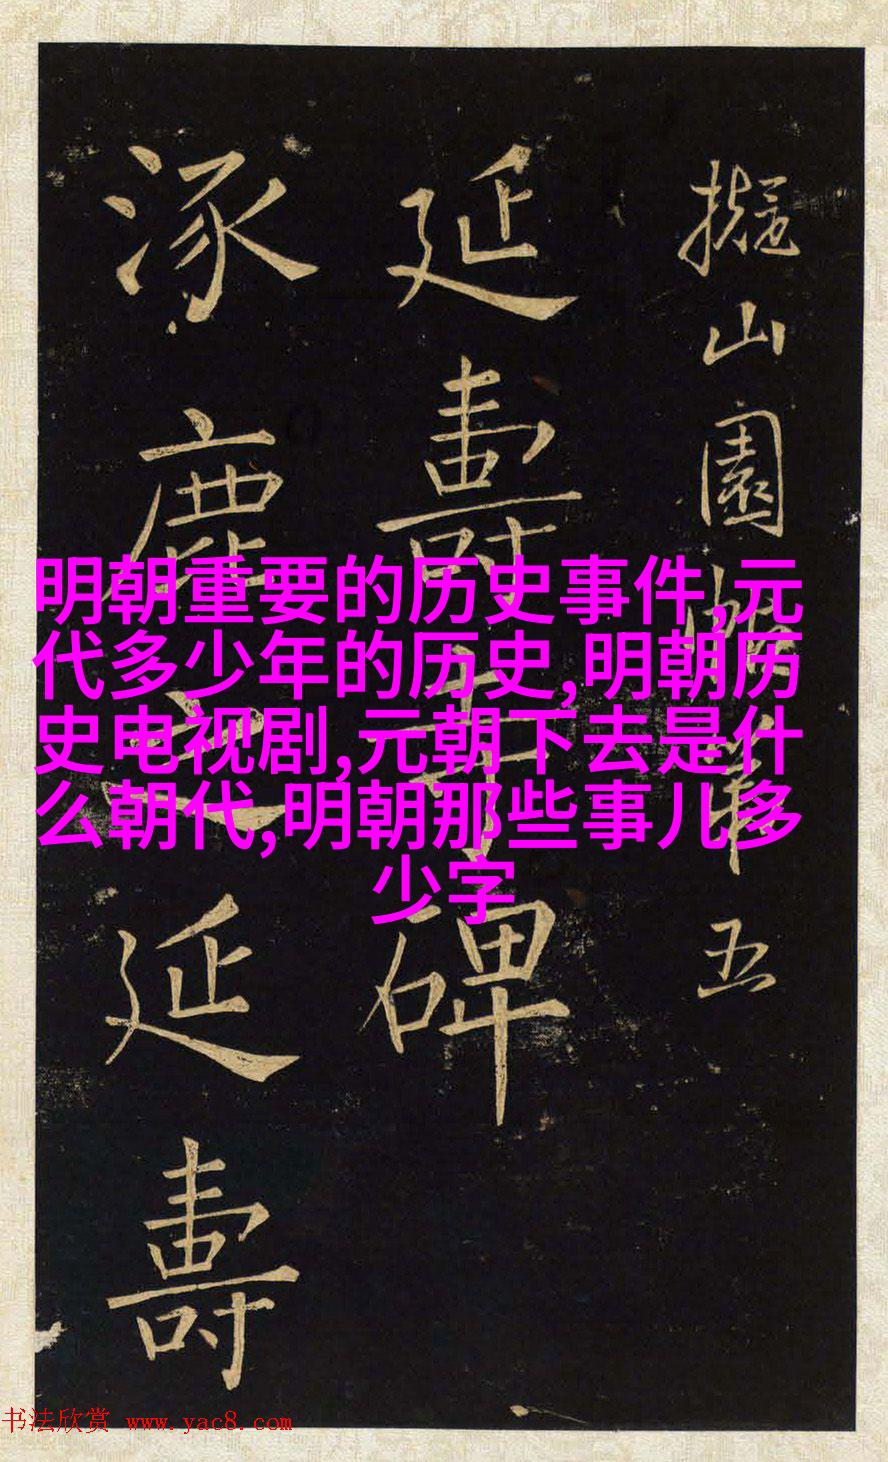 擬山園帖第五
延壽寺碑
涿鹿之延壽
明朝重要的历史事件,元
代多少年的历史,明朝历
史电视剧,元朝下去是什
么朝代,明朝那些事儿多
少字
书法欣赏 www.yac8.com